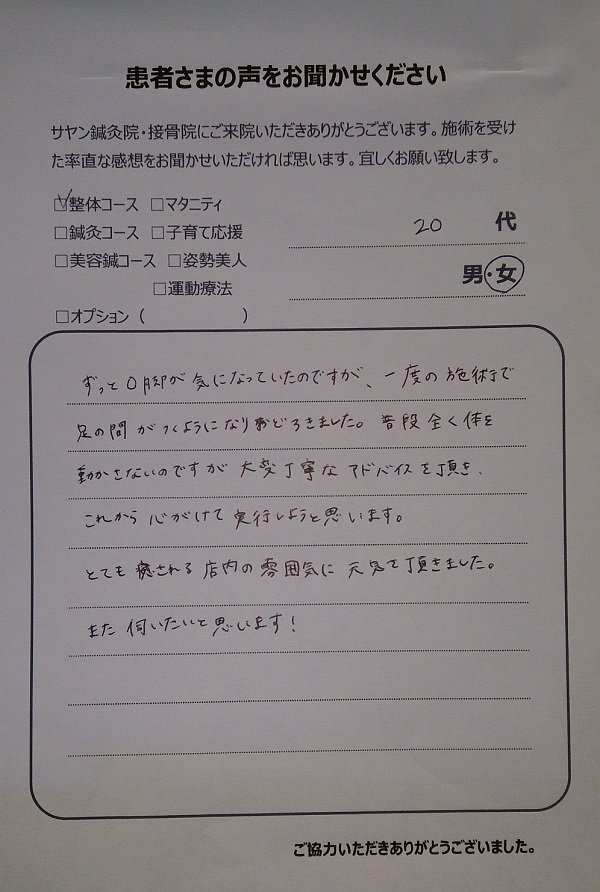 患者さまの声をお聞かせください
サヤン鍼灸院・接骨院にご来院いただきありがとうございます。施術を受け
た率直な感想をお聞かせいただければ思います。宜しくお願い致します。
☑整体コース □マタニティ
□鍼灸コース □子育て応援
20 代
□美容鍼コース □姿勢美人
男・女
□運動療法
□オプション（ ）
ずっとO脚が気になっていたのですが、一度の施術で
足の間がつくようになりおどろきました。普段全く体を
動かさないのですが大変丁寧なアドバイスを頂き、
これから心がけて実行しようと思います。
とても癒される店内の雰囲気に元気を頂きました。
また伺いたいと思います！
ご協力いただきありがとうございました。